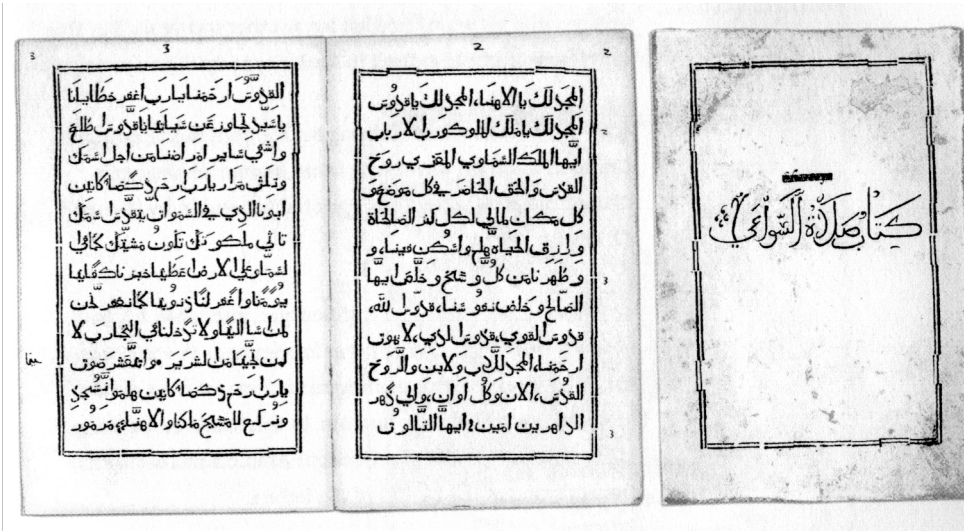 كتاب صلاة السواعي
2
2
المجد لك يا الاهنا، المجد لك يا قدوس
المجد لك يا ملك الملوك ورب الارباب
ايها الملك السماوي المعزي روح
القدس والحق الحاضر في كل موضع و
كل مكان لمالي لكل كنز الصالحاة
و رازق الحياه هلم واسكن فينا، و
و طهرنا من كل وسخ وخلص ايها
الصالح وخلص نفوسنا، قدوس الله،
قدوس القوي، قدوس الذي، لا يموت
ارحمنا، المجد للاب ولابن والروح
القدس، الان وكل اوان، والي دهر
الداهرين امين؛ ايها التالوت
3
3
القدوس ارحمنا يا رب اغفر خطايانا
يا سيد تجاوز عن سياتنا يا قدوس طلع
واشفي ساير امراضنا من اجل اسمك
وتلت مرار يا رب ارحم دكسا كانين
ابونا الذي في السموات يتقدس اسمك
تاتي ملكوتك تكون مشيتك كما في
لسما وعلي الارض اعطينا خبزنا كفاينا
يومنا واغفر لنا ذنوبنا كما نغفر
لمن اسا الينا ولا تدخلنا في التجارب لا
كن نجينا من لشرير •
يا رب ارحم دكسا كانين هلموا نسجد
ونركع للمسيح ملكنا والاهنا، مزمور